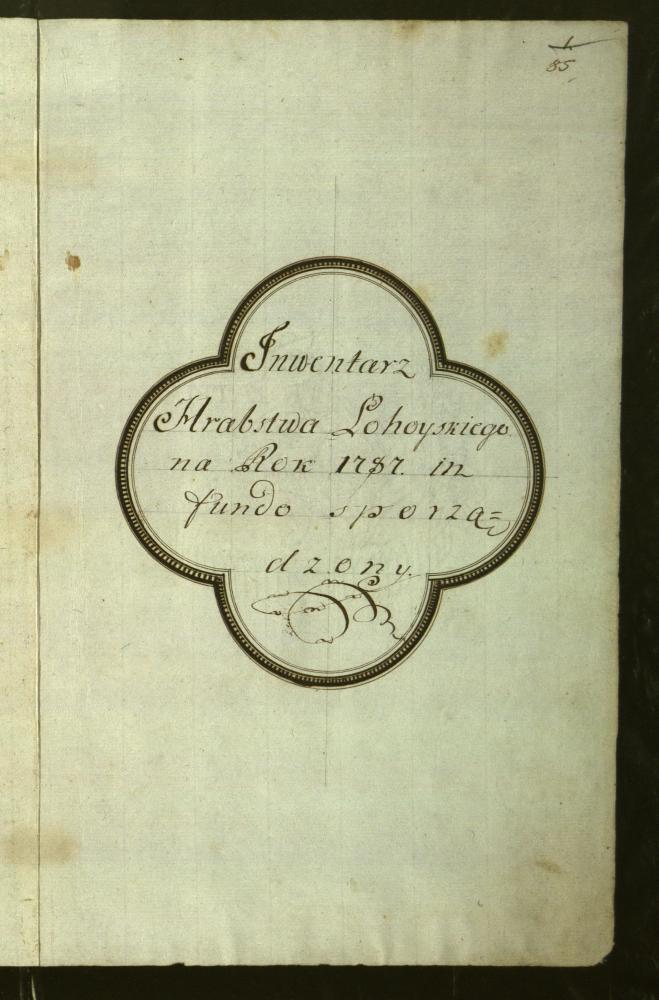 1.
85
Inwentarz
Hrabstwa Lohoyskiego
na Rok 1787. in
fundo sporzą=
dzony.